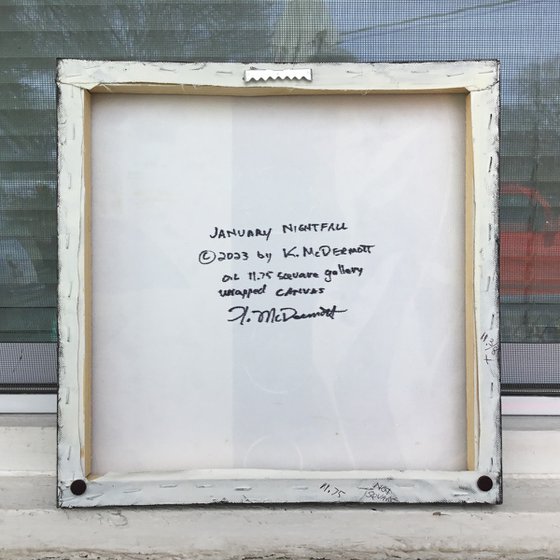 JANUARY NIGHTFALL
© 2023 by K. McDERMOTT
OIL 11.75 square gallery
wrapped CANVAS
K. McDermott
11.75
NOT
SQUARE